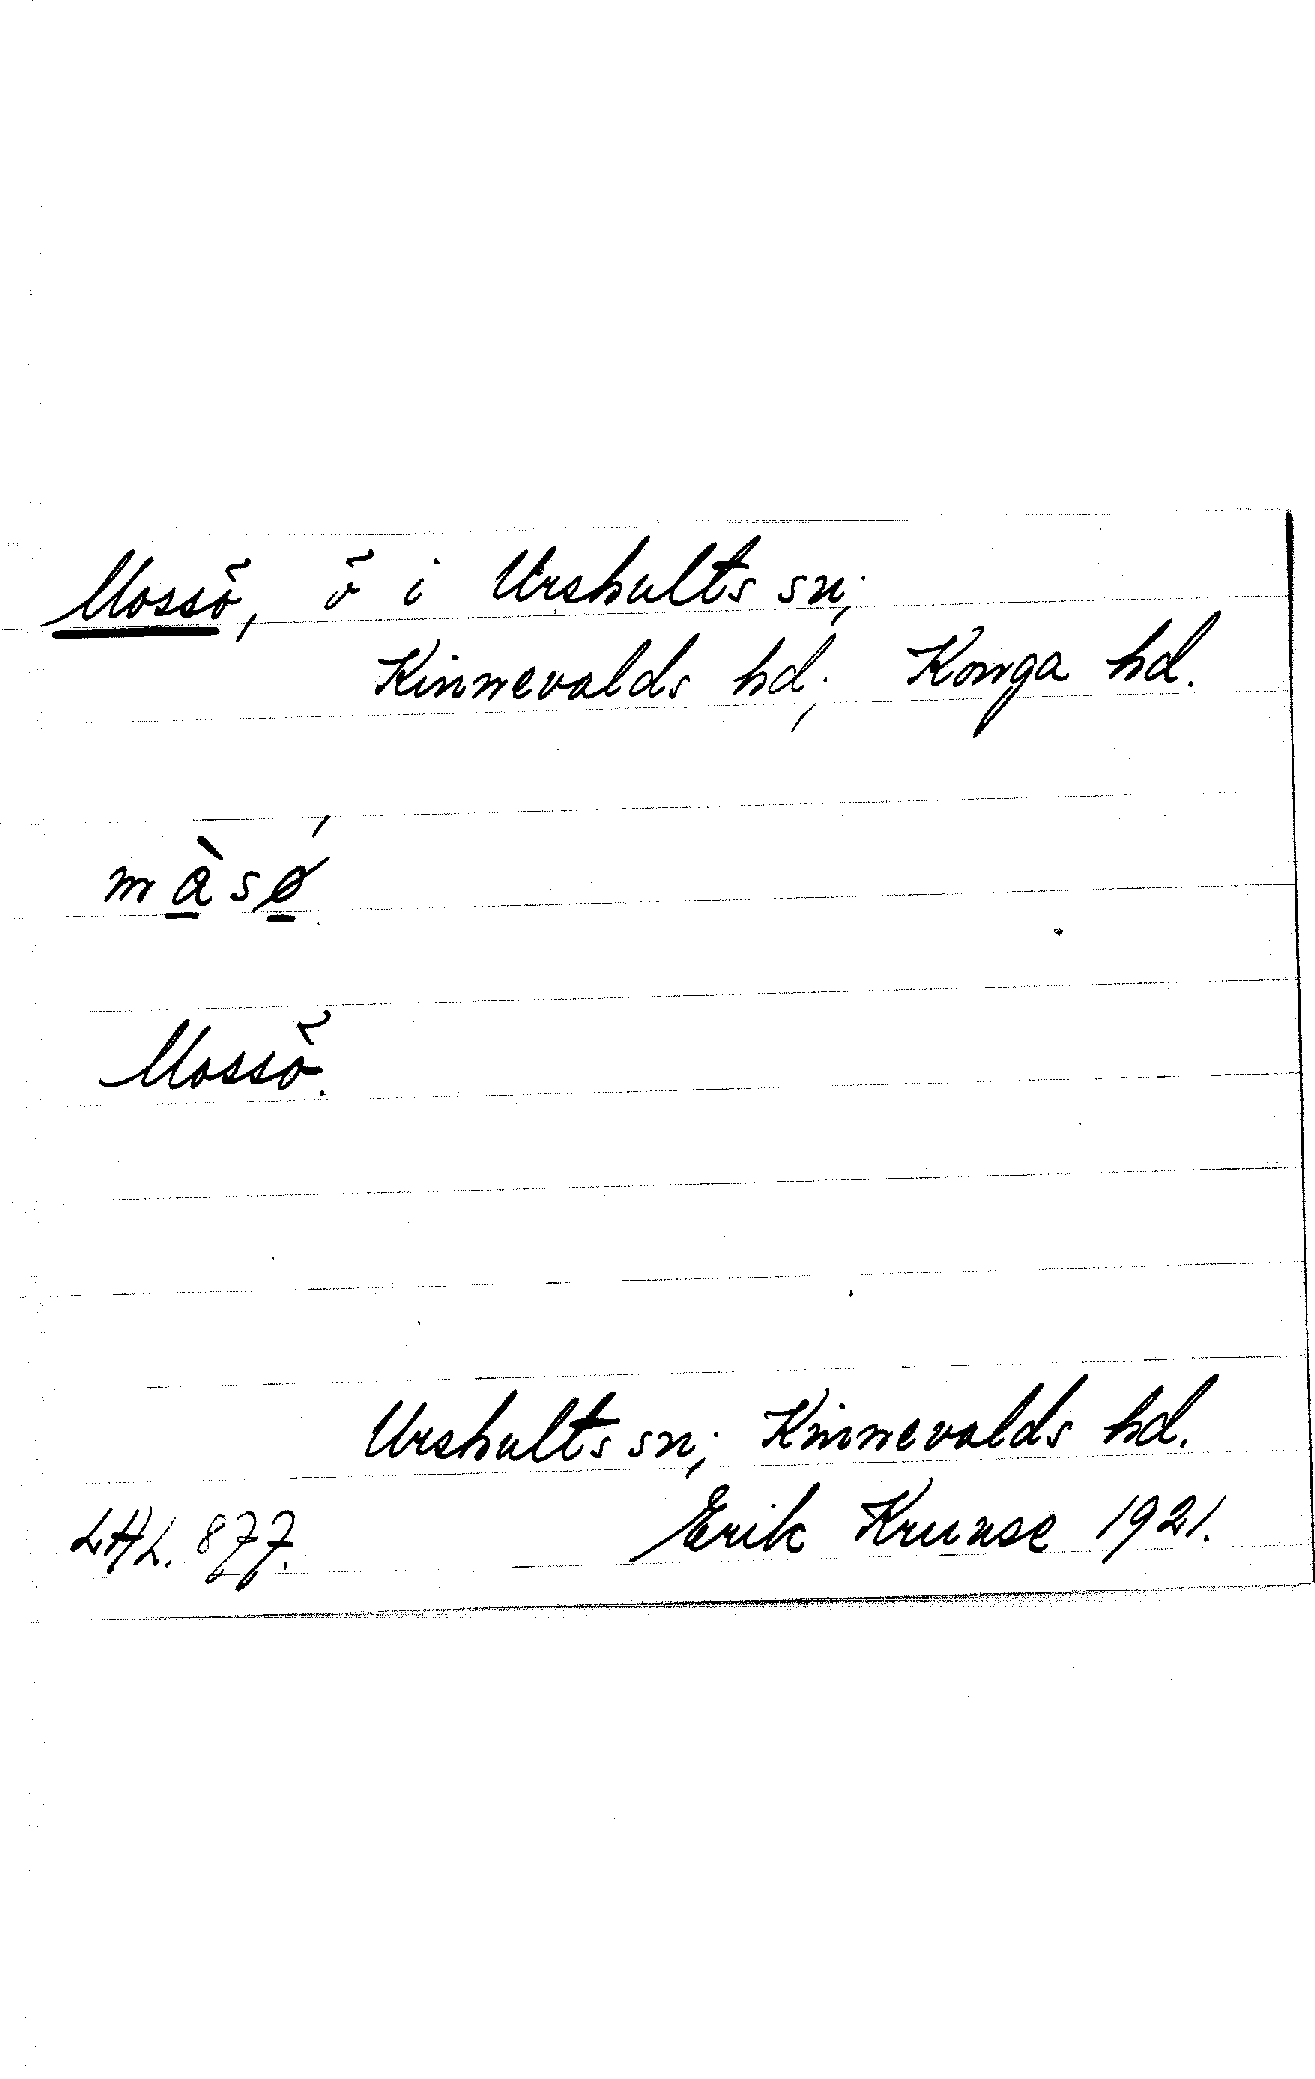 Mossö, ö i Urshults sn;
Kinnevalds hd; Konga hd.
màsǿ
Mossö.
Urshults sn; Kinnevalds hd.
LAL. 877. Erik Kruuse 1921.